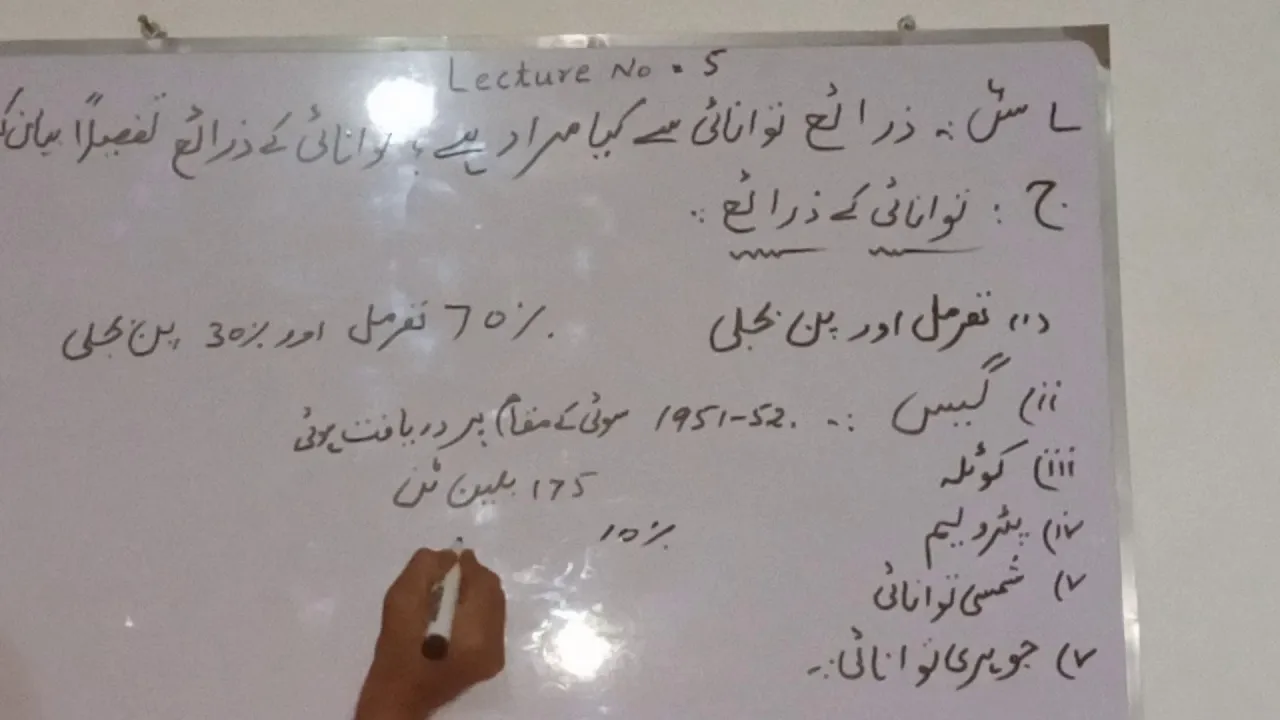 Lecture No. 5
س: ذرائع توانائی سے کیا مراد ہے؟ توانائی کے ذرائع تفصیلاً بیان
ج: توانائی کے ذرائع:
(i) تھرمل اور پن بجلی 70% تھرمل اور 30% پن بجلی
(ii) گیس :- 1951-52 سوئی کے مقام پر دریافت ہوئی
(iii) کوئلہ 175 بلین ٹن
(iv) پٹرولیم 10%
(v) شمسی توانائی
(v) جوہری توانائی:-